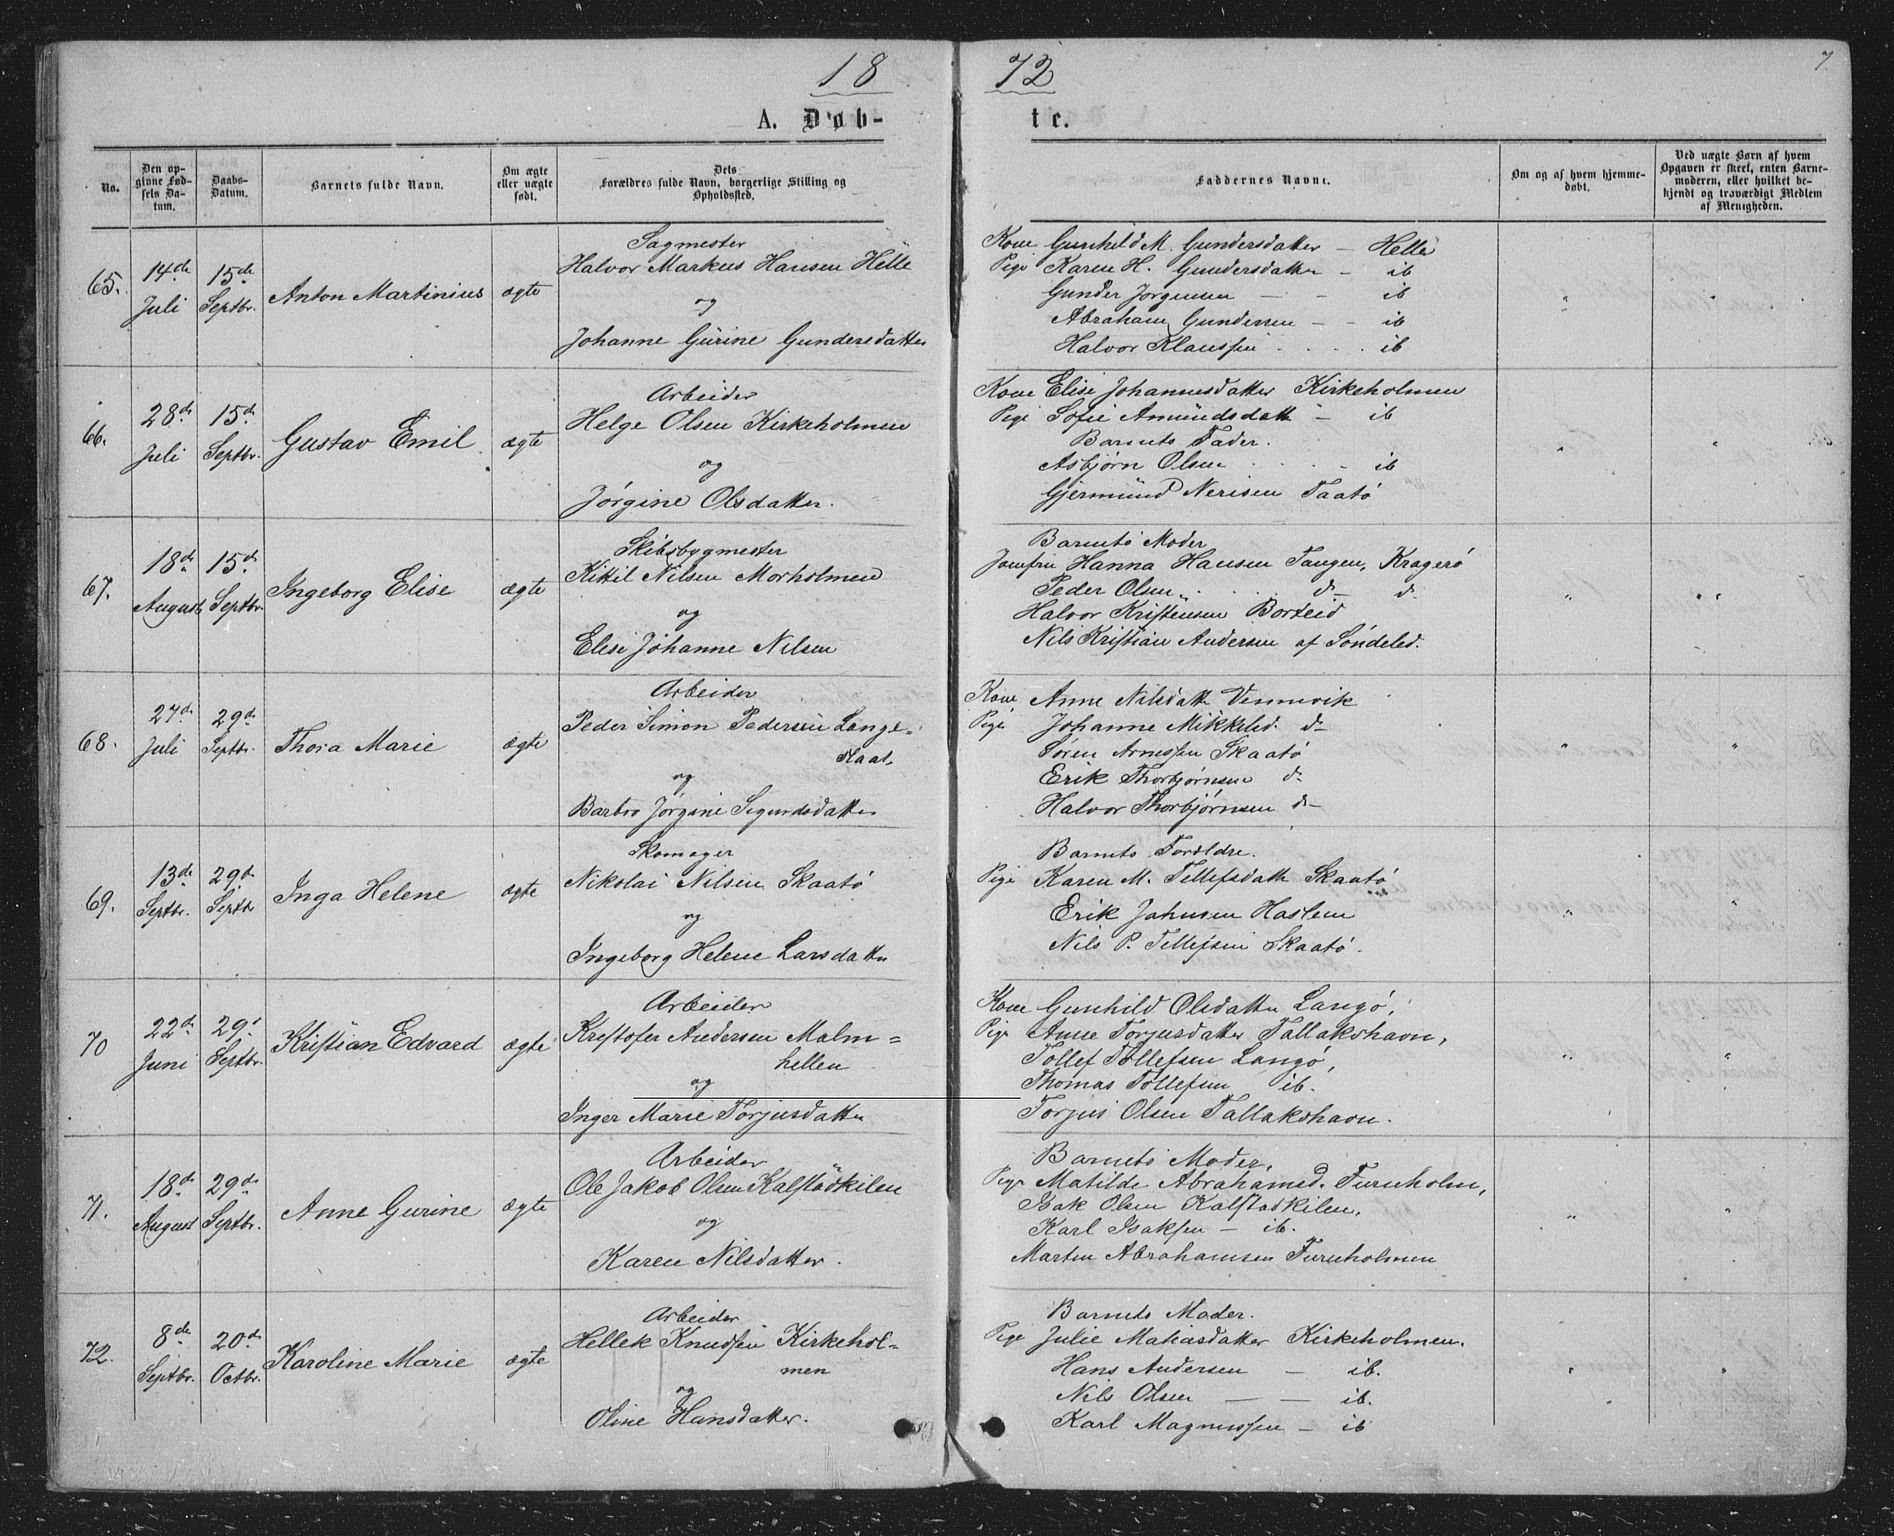 18 72
7
A. Døb- te.
No.
Den opgivne Fødsels Datum.
Daabs-Datum.
Barnets fulde Navn.
Om ægte eller uægte født.
Dets
Forældres fulde Navn, borgerlige Stilling og Opholdssted.
Faddernes Navne.
Om og af hvem hjemmedøbt.
Ved uægte Børn af hvem Opgaven er skeet, enten Barnemoderen, eller hvilket bekjendt og troværdigt Medlem af Menigheden.
65. 14de Juli 15de Septbr. Anton Martinius ægte
Sagmester
Halvor Markus Hansen Helle
og
Johanne Gurine Gundersdatter
Kone Gunhild M. Gundersdatter — Helle
Pige Karen H. Gundersdatter — ib
Gunder Jørgensen — - ib
Abraham Gundersen — - ib
Halvor Klaussen . . . . ib
66. 28de Juli 15de Septbr. Gustav Emil ægte
Arbeider
Helge Olsen Kirkeholmen
og
Jørgine Olsdatter.
Kone Elise Johannesdatter Kirkeholmen
Pige Sofie Amundsdatt — ib
Barnets Fader.
Asbjørn Olsen . . . - ib
Gjermund Nerisen Taatø
67. 18de August 15de Septbr. Ingeborg Elise ægte
Skibsbygmester
Kittil Nilsen Morholmen
og
Elise Johanne Nilsen
Barnets Moder
Jomfru Hanna Hansen Tangen, Kragerø
Peder Olsen . . . . d— d.
Halvor Kristensen Borteid
Nils Kristian Andersen af Søndeled.
68. 27de Juli 29de Septbr. Thora Marie ægte
Arbeider
Peder Simon Pedersen Lange-
Skaat.
og
Barbro Jørgine Sigurdsdatter
Kone Anne Nilsdatt Vennevik
Pige Johanne Mikkelsd. d—
Søren Arnessen Skaatø
Erik Thorbjørnsen d-
Halvor Thorbjørnsen d—
69. 13de Septbr. 29de Septbr Inga Helene ægte
Skomager
Nikolai Nilsen Skaatø
og
Ingeborg Helene Larsdatter
Barnets Forældre.
Pige Karen M. Tellefsdatt Skaatø
Erik Johnsen Haslem
Nils P. Tellefsen Skaatø.
70 22de Juni 29de Septbr. Kristian Edvard ægte
Arbeider
Kristofer Andersen Malm=
hellen
og
Inger Marie Torjusdatter
Kone Gunhild Olsdatter Langø,
Pige Anne Torjusdatter Tallakshavn,
Tollef Tollefsen Langø,
Thomas Tollefsen ib.
Torjus Olsen Tallakshavn.
71. 18de August 29de Septbr. Anne Gurine ægte
Arbeider
Ole Jakob Olsen Kalstadkilen
og
Karen Nilsdatter.
Barnets Moder,
Pige Matilde Abrahamsd. Furuholm,
Isak Olsen Kalstadkilen,
Karl Isaksen — ib.
Marten Abrahamsen Furuholmen
72. 8de Septbr. 20de Octbr. Karoline Marie ægte
Arbeider
Hellek Knudsen Kirkehol-
men
og
Oline Hansdatter.
Barnets Moder.
Pige Julie Matiasdatter Kirkeholmen.
Hans Andersen — ib.
Nils Olsen — — ib.
Karl Magnussen — ib